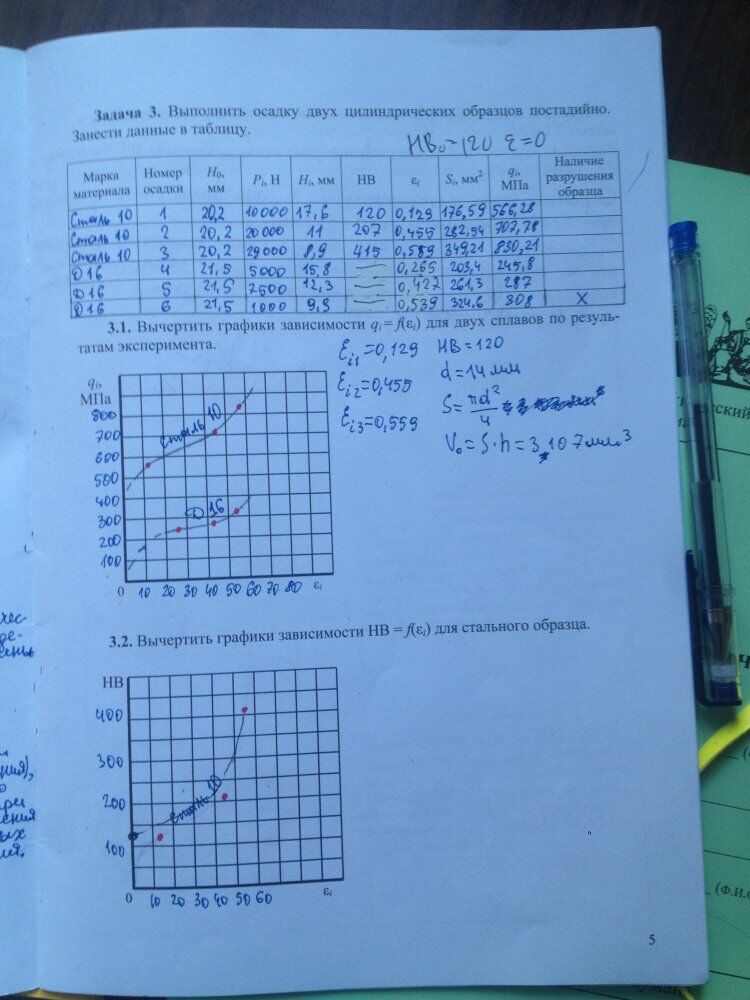 Задача 3. Выполнить осадку двух цилиндрических образцов постадийно.
Занести данные в таблицу.
HB₀=120 ε=0
Марка материала Номер осадки H₀, мм Pᵢ, Н Hᵢ, мм HB εᵢ Sᵢ, мм² qᵢ, МПа Наличие разрушения образца
Сталь 10 1 20,2 10000 17,6 120 0,129 176,59 566,28
Сталь 10 2 20,2 20000 11 207 0,455 282,54 707,78
Сталь 10 3 20,2 29000 8,9 415 0,589 349,21 830,21
Д16 4 21,5 5000 15,8 0,265 203,4 245,8
Д16 5 21,5 7500 12,3 0,427 261,3 287
Д16 6 21,5 1000 9,9 0,539 324,6 308 X
3.1. Вычертить графики зависимости qᵢ = f(εᵢ) для двух сплавов по резуль-
татам эксперимента.
εᵢ₁=0,129 HB=120
εᵢ₂=0,455 d=14мм
εᵢ₃=0,559 S=πd²/4
V₀=S·h=3,107мм³
qᵢ,
МПа
800
700
600
500
400
300
200
100
Сталь 10
Д16
0 10 20 30 40 50 60 70 80 εᵢ
3.2. Вычертить графики зависимости HB = f(εᵢ) для стального образца.
HB
400
300
200
100
Сталь 10
0 10 20 30 40 50 60 εᵢ
5